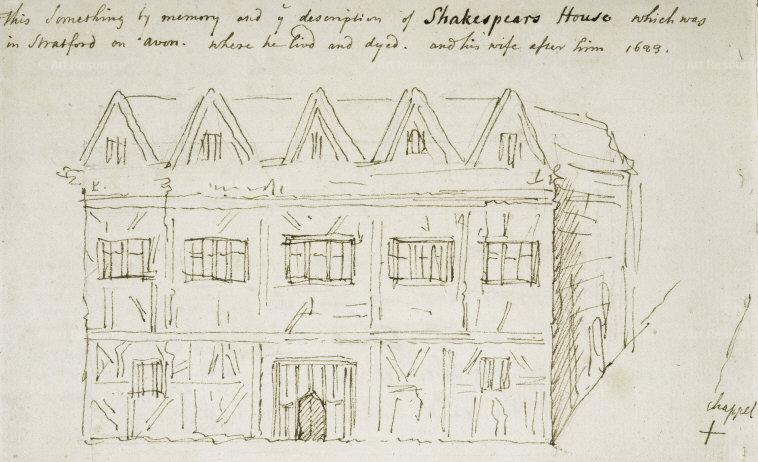 This Something by memory and yͤ description of Shakespears House which was
in Stratford on avon. where he livd and dyed. and his wife after him 1683.
chappel